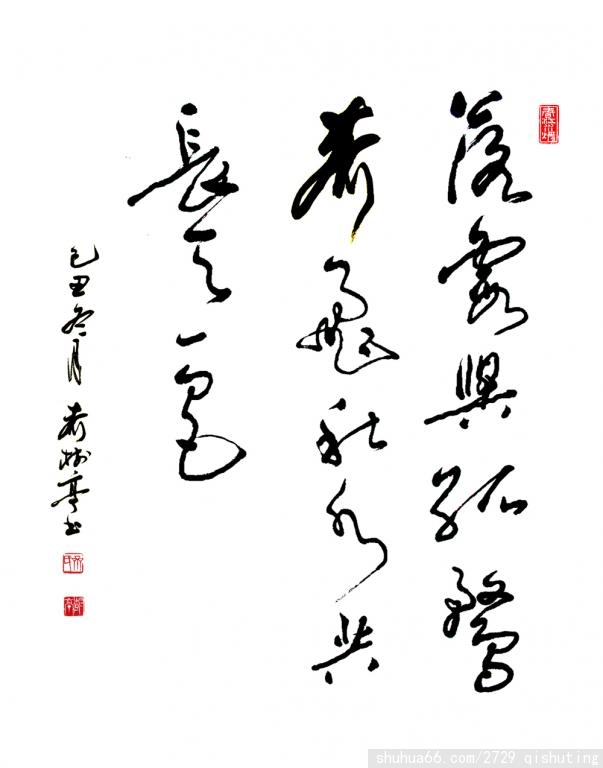 落霞與孤鶩
齐飛秋水共
長天一色
己丑冬月 齐树亭书
shuhua66.com/2729 qishuting